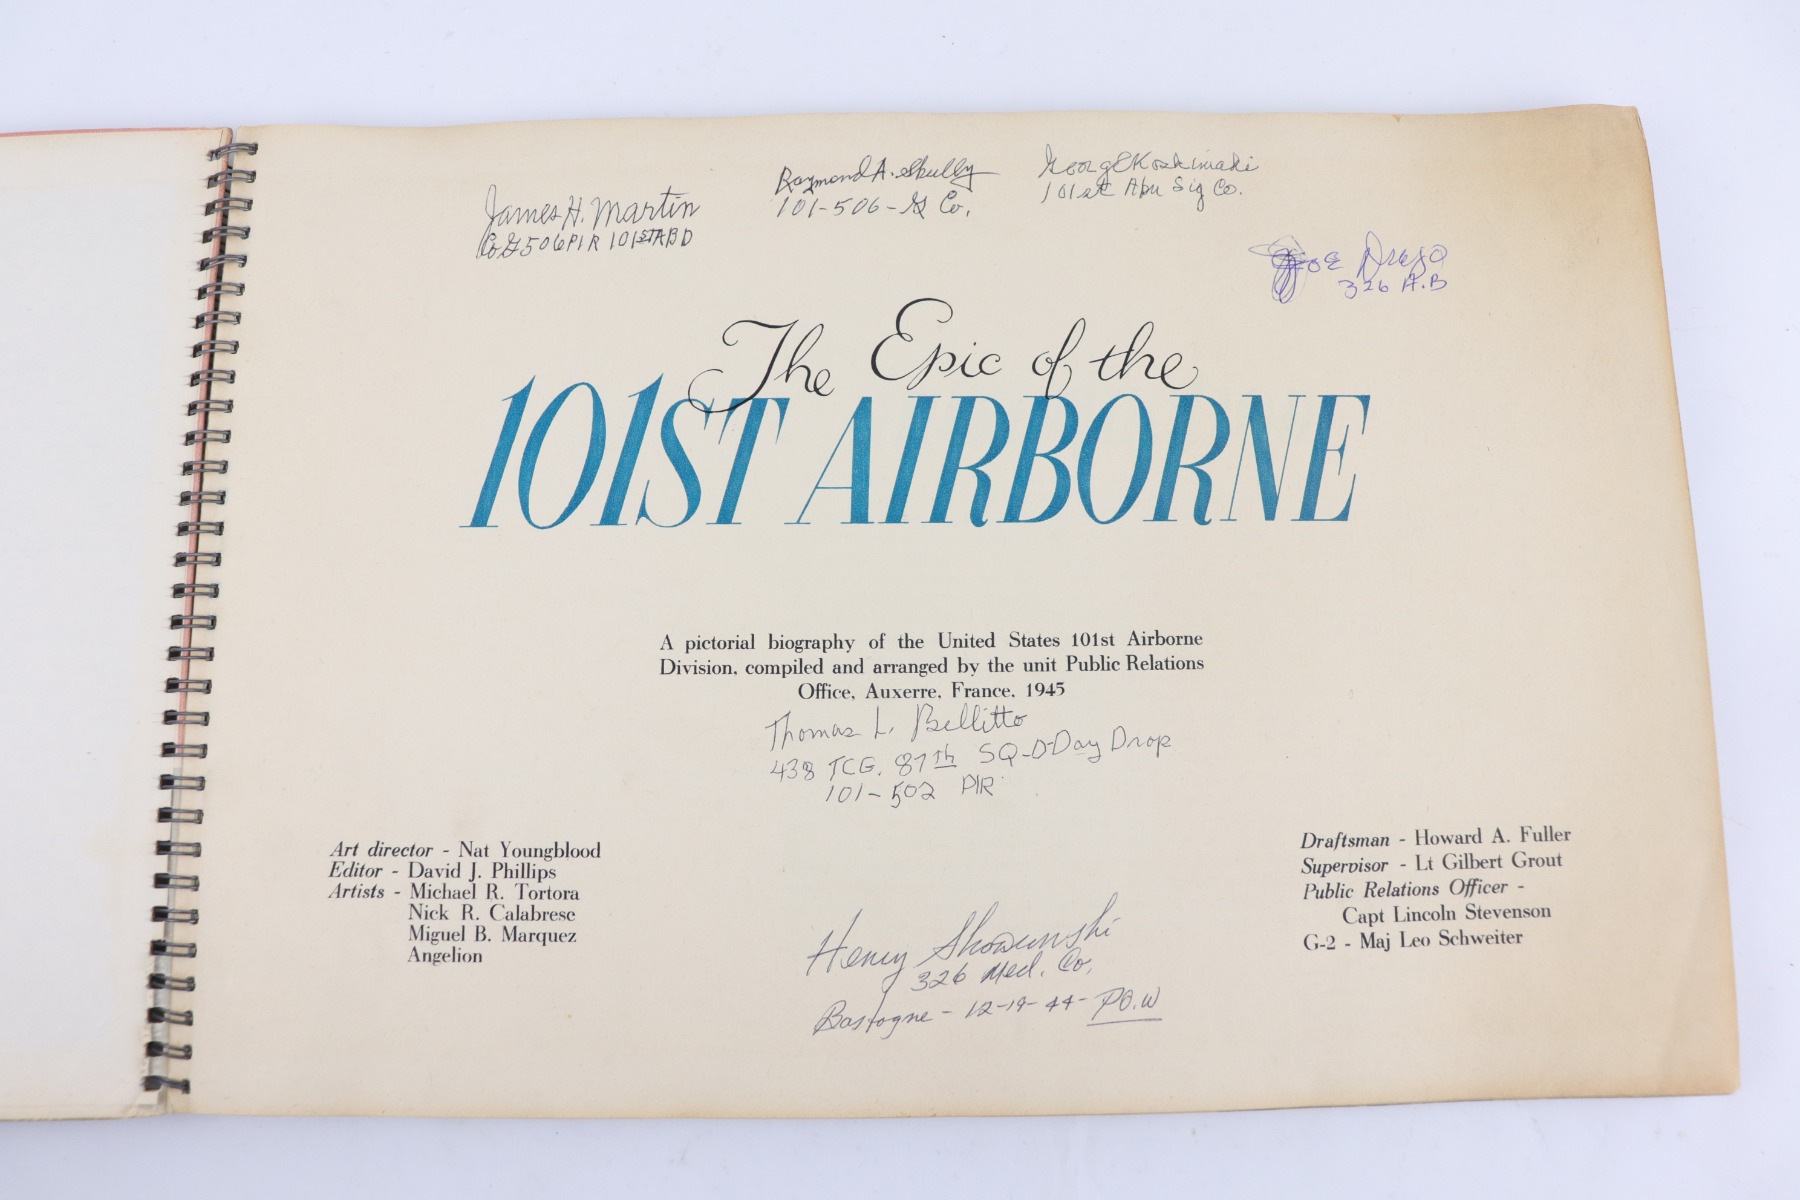 James H. Martin
Co G 506 PIR 101ST ABD
Raymond A. Skully
101-506-G Co.
George Koskimaki
101st Abn Sig Co.
Joe Drago
326 A.B
The Epic of the
101ST AIRBORNE
A pictorial biography of the United States 101st Airborne
Division, compiled and arranged by the unit Public Relations
Office, Auxerre, France, 1945
Thomas L. Bellitto
438 TCG. 87th SQ-D-Day Drop
101-502 PIR
Art director - Nat Youngblood
Editor - David J. Phillips
Artists - Michael R. Tortora
Nick R. Calabrese
Miguel B. Marquez
Angelion
Draftsman - Howard A. Fuller
Supervisor - Lt Gilbert Grout
Public Relations Officer -
Capt Lincoln Stevenson
G-2 - Maj Leo Schweiter
Henry
326 Med. Co.
Bastogne - 12-19-44- P.O.W